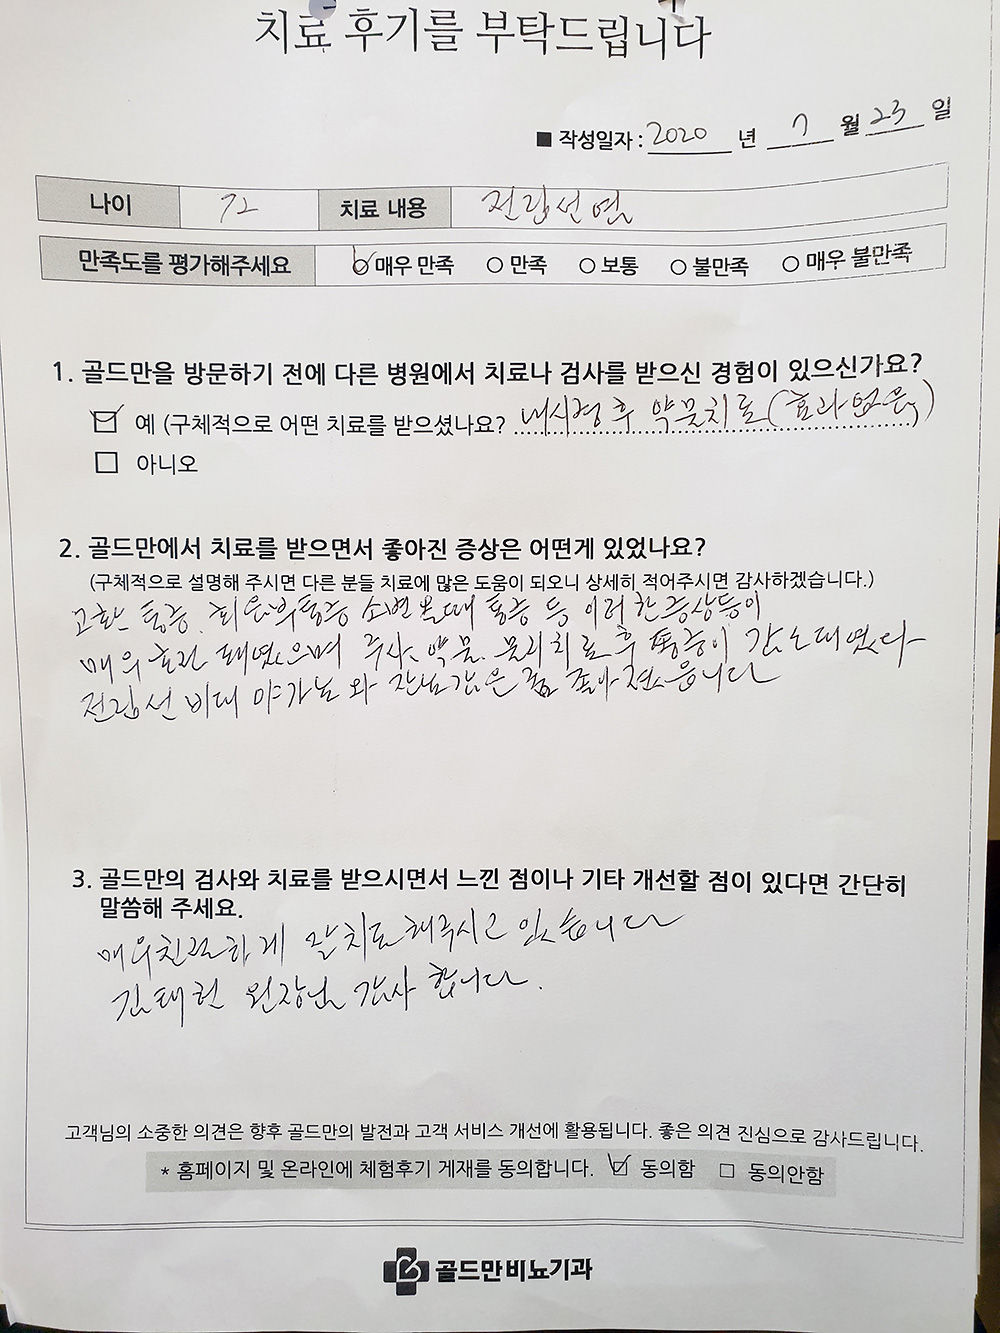 치료 후기를 부탁드립니다
■ 작성일자 : 2020 년 7 월 23 일
나이 72 치료 내용 전립선염
만족도를 평가해주세요 ○ 매우 만족 ○ 만족 ○ 보통 ○ 불만족 ○ 매우 불만족
1. 골드만을 방문하기 전에 다른 병원에서 치료나 검사를 받으신 경험이 있으신가요?
☑ 예 (구체적으로 어떤 치료를 받으셨나요? 내시경 후 약물치료 (효과 없음)
□ 아니오
2. 골드만에서 치료를 받으면서 좋아진 증상은 어떤게 있었나요?
(구체적으로 설명해 주시면 다른 분들 치료에 많은 도움이 되오니 상세히 적어주시면 감사하겠습니다.)
고환 통증, 회음부통증 소변볼때 통증 등 이러한증상들이
매우 심했었으며 주사, 약물, 물리치료 후 통증이 감소되었다
전립선 비대 야간뇨 와 잔뇨감은 좀 좋아졌습니다
3. 골드만의 검사와 치료를 받으시면서 느낀 점이나 기타 개선할 점이 있다면 간단히
말씀해 주세요.
매우친절하게 잘치료해주시고 있습니다
김태헌 원장님 감사 합니다.
고객님의 소중한 의견은 향후 골드만의 발전과 고객 서비스 개선에 활용됩니다. 좋은 의견 진심으로 감사드립니다.
* 홈페이지 및 온라인에 체험후기 게재를 동의합니다. ☑ 동의함 □ 동의안함
골드만비뇨기과